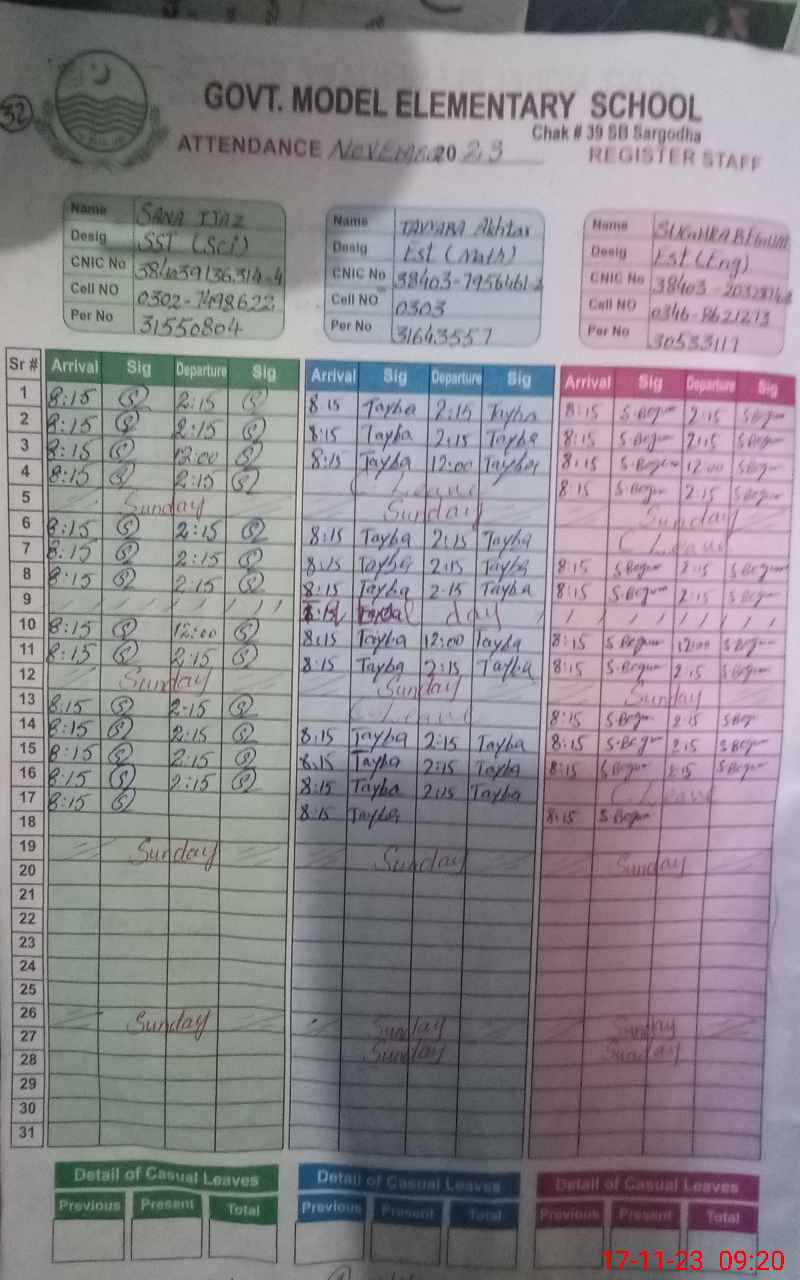 32
GOVT. MODEL ELEMENTARY SCHOOL
Chak # 39 SB Sargodha
ATTENDANCE November 2023 REGISTER STAFF
Name SANA IJAZ
Desig SST (Sci)
CNIC No
Cell NO 0302-7498622
Per No 31550804
Name TAYYABA Akhtar
Desig Est (Math)
CNIC No
Cell NO 0303
Per No 31643557
Name SUGHRA BEGUM
Desig Est (Eng)
CNIC No
Cell NO 0346-8621273
Per No 30533117
Sr # Arrival Sig Departure Sig Arrival Sig Departure Sig Arrival Sig Departure Sig
1 8:15 S 2:15 S 8:15 Tayba 2:15 Tayba 8:15 S.Begum 2:15 S.Begum
2 8:15 S 2:15 S 8:15 Tayba 2:15 Tayba 8:15 S.Begum 2:15 S.Begum
3 8:15 S 12:00 S 8:15 Tayba 12:00 Tayba 8:15 S.Begum 12:00 S.Begum
4 8:15 S 2:15 S C Leave 8:15 S.Begum 2:15 S.Begum
5 Sunday Sunday Sunday
6 8:15 S 2:15 S 8:15 Tayba 2:15 Tayba C Leave
7 8:15 S 2:15 S 8:15 Tayba 2:15 Tayba 8:15 S.Begum 2:15 S.Begum
8 8:15 S 2:15 S 8:15 Tayba 2:15 Tayba 8:15 S.Begum 2:15 S.Begum
9 day
10 8:15 S 12:00 S 8:15 Tayba 12:00 Tayba 8:15 S.Begum 12:00 S.Begum
11 8:15 S 2:15 S 8:15 Tayba 2:15 Tayba 8:15 S.Begum 2:15 S.Begum
12 Sunday Sunday Sunday
13 8:15 S 2:15 S C Leave 8:15 S.Begum 2:15 S.Beg
14 8:15 S 2:15 S 8:15 Tayba 2:15 Tayba 8:15 S.Begum 2:15 S.Begum
15 8:15 S 2:15 S 8:15 Tayba 2:15 Tayba 8:15 S.Begum 2:15 S.Begum
16 8:15 S 2:15 S 8:15 Tayba 2:15 Tayba C Leave
17 8:15 S 8:15 Tayba 8:15 S.Begum
18
19 Sunday Sunday Sunday
20
21
22
23
24
25
26 Sunday Sunday Sunday
27 Sunday Sunday
28
29
30
31
Detail of Casual Leaves Detail of Casual Leaves Detail of Casual Leaves
Previous Present Total Previous Present Total Previous Present Total
17-11-23 09:20